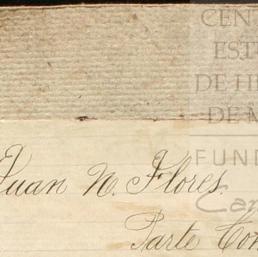 CEN
EST
DE H
DE M
FUND
Juan N. Flores.
Parte Con